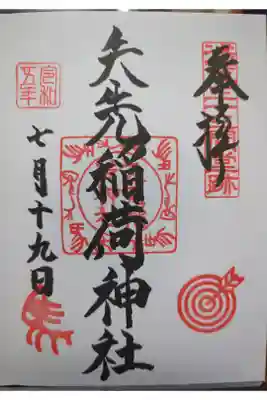 奉拝
矢先稲荷神社
令和
五年
七月十九日